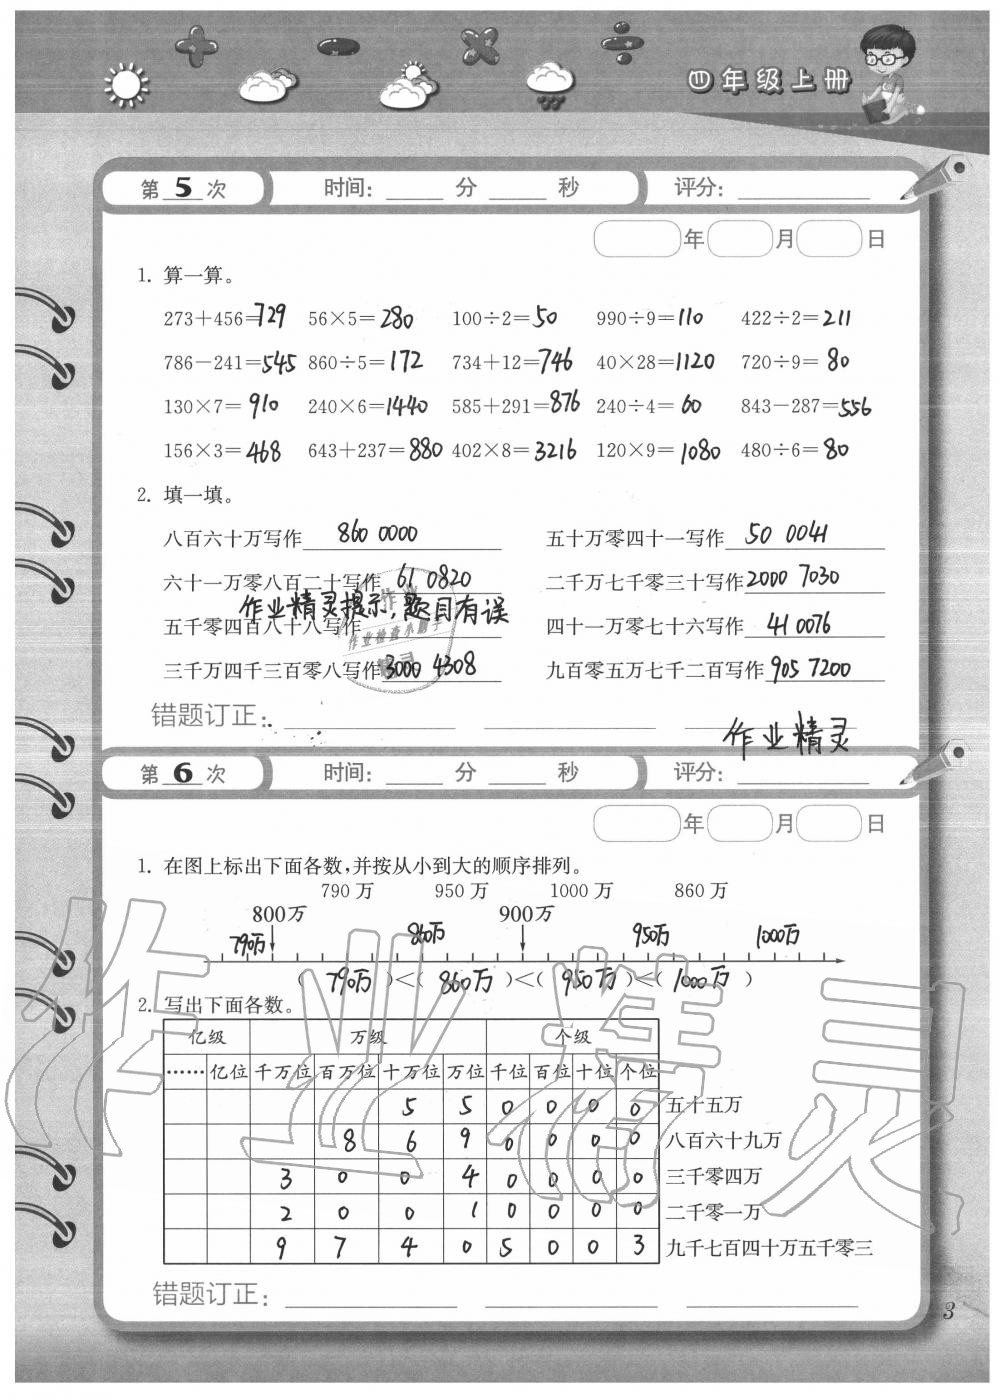 四年级上册
第 5 次 时间: 分 秒 评分:
年 月 日
1. 算一算。
273+456=729 56×5=280 100÷2=50 990÷9=110 422÷2=211
786-241=545 860÷5=172 734+12=746 40×28=1120 720÷9=80
130×7=910 240×6=1440 585+291=876 240÷4=60 843-287=556
156×3=468 643+237=880 402×8=3216 120×9=1080 480÷6=80
2. 填一填。
八百六十万写作 860 0000 五十万零四十一写作 50 0041
六十一万零八百二十写作 61 0820 二千万七千零三十写作 2000 7030
作业精灵提示,题目有误
五千零四百八十八写作 四十一万零七十六写作 41 0076
三千万四千三百零八写作 3000 4308 九百零五万七千二百写作 905 7200
错题订正:
作业精灵
第 6 次 时间: 分 秒 评分:
年 月 日
1. 在图上标出下面各数,并按从小到大的顺序排列。
790万 950万 1000万 860万
800万 900万
790万 860万 950万 1000万
( 790万 )<( 860万 )<( 950万 )<( 1000万 )
2. 写出下面各数。
亿级 万级 个级
…… 亿位 千万位 百万位 十万位 万位 千位 百位 十位 个位
5 5 0 0 0 0 五十五万
8 6 9 0 0 0 0 八百六十九万
3 0 0 4 0 0 0 0 三千零四万
2 0 0 1 0 0 0 0 二千零一万
9 7 4 0 5 0 0 3 九千七百四十万五千零三
错题订正:
3
作业精灵